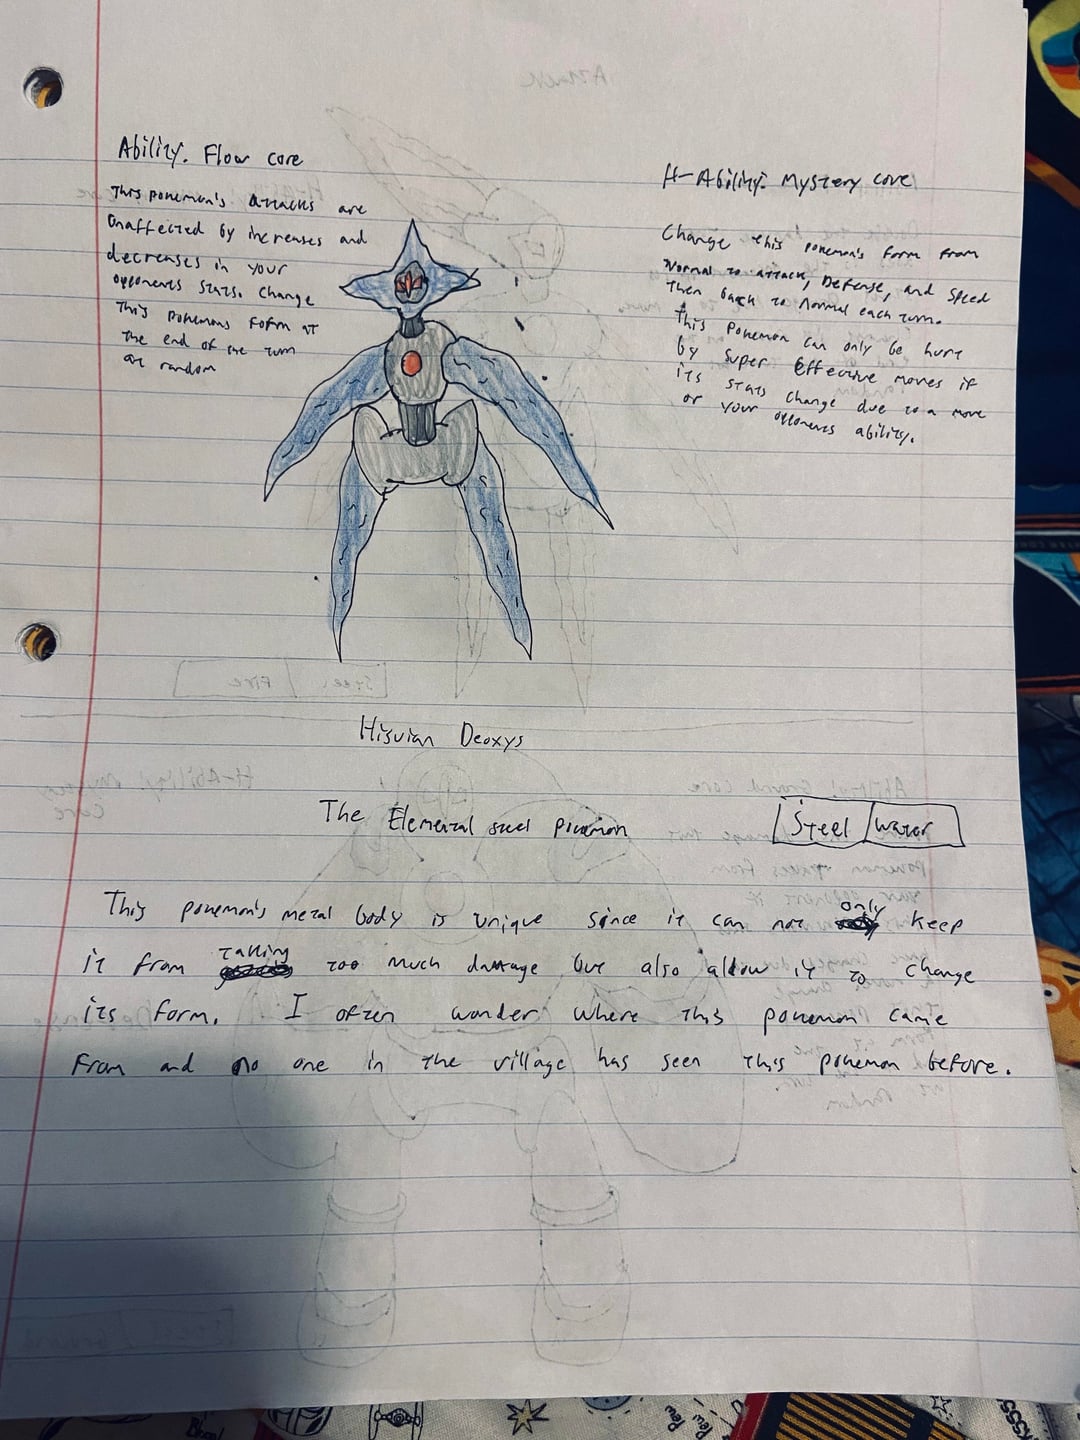 Ability: Flow core
This pokemon's attacks are
unaffected by increases and
decreases in your
opponents stats. Change
This pokemons form at
the end of the turn
at random
H-Ability: Mystery core
Change this pokemon's form from
Normal to attack, Defense, and Speed
Then back to Normal each turn.
This pokemon can only be hurt
by super effective moves if
its stats change due to a move
or your opponents ability.
Hisuian Deoxys
The Elemental steel pokemon
Steel / water
This pokemon's metal body is unique since it can not only keep
it from taking too much damage but also allow it to change
its form. I often wonder where this pokemon came
From and no one in the village has seen this pokemon before.
Attack
Steel / Fire
H-Ability: Mystery
Core
Ability: Ground Core
Steel / Ground
Pew
Pew